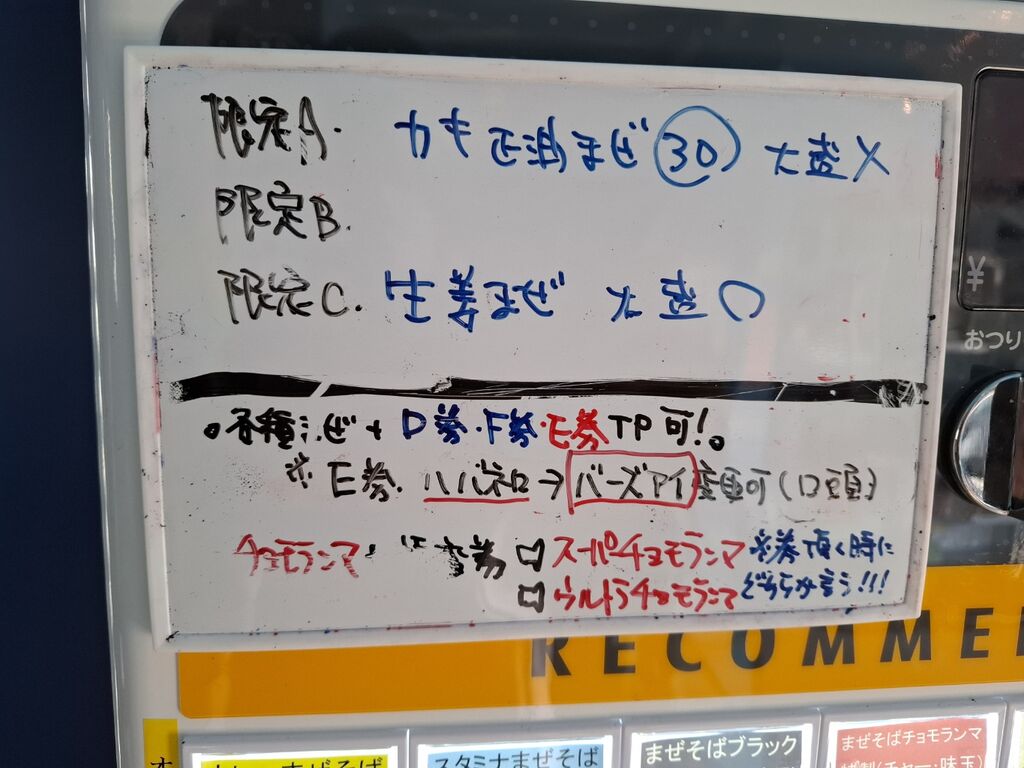 限定A. カキ正油まぜ 30 大盛×
限定B.
限定C. 生姜まぜ 大盛○
。各種まぜ + D券・F券・E券TP可!。
※E券. ハバネロ→バーズアイ変更可(口頭)
チョモランマ 券 □スーパーチョモランマ ※券頂く時に
□ウルトラチョモランマ どちらか言う!!!
¥
おつり
RECOMME
スタミナまぜそば
まぜそばブラック
まぜそばチョモランマ
(チャー・味玉)